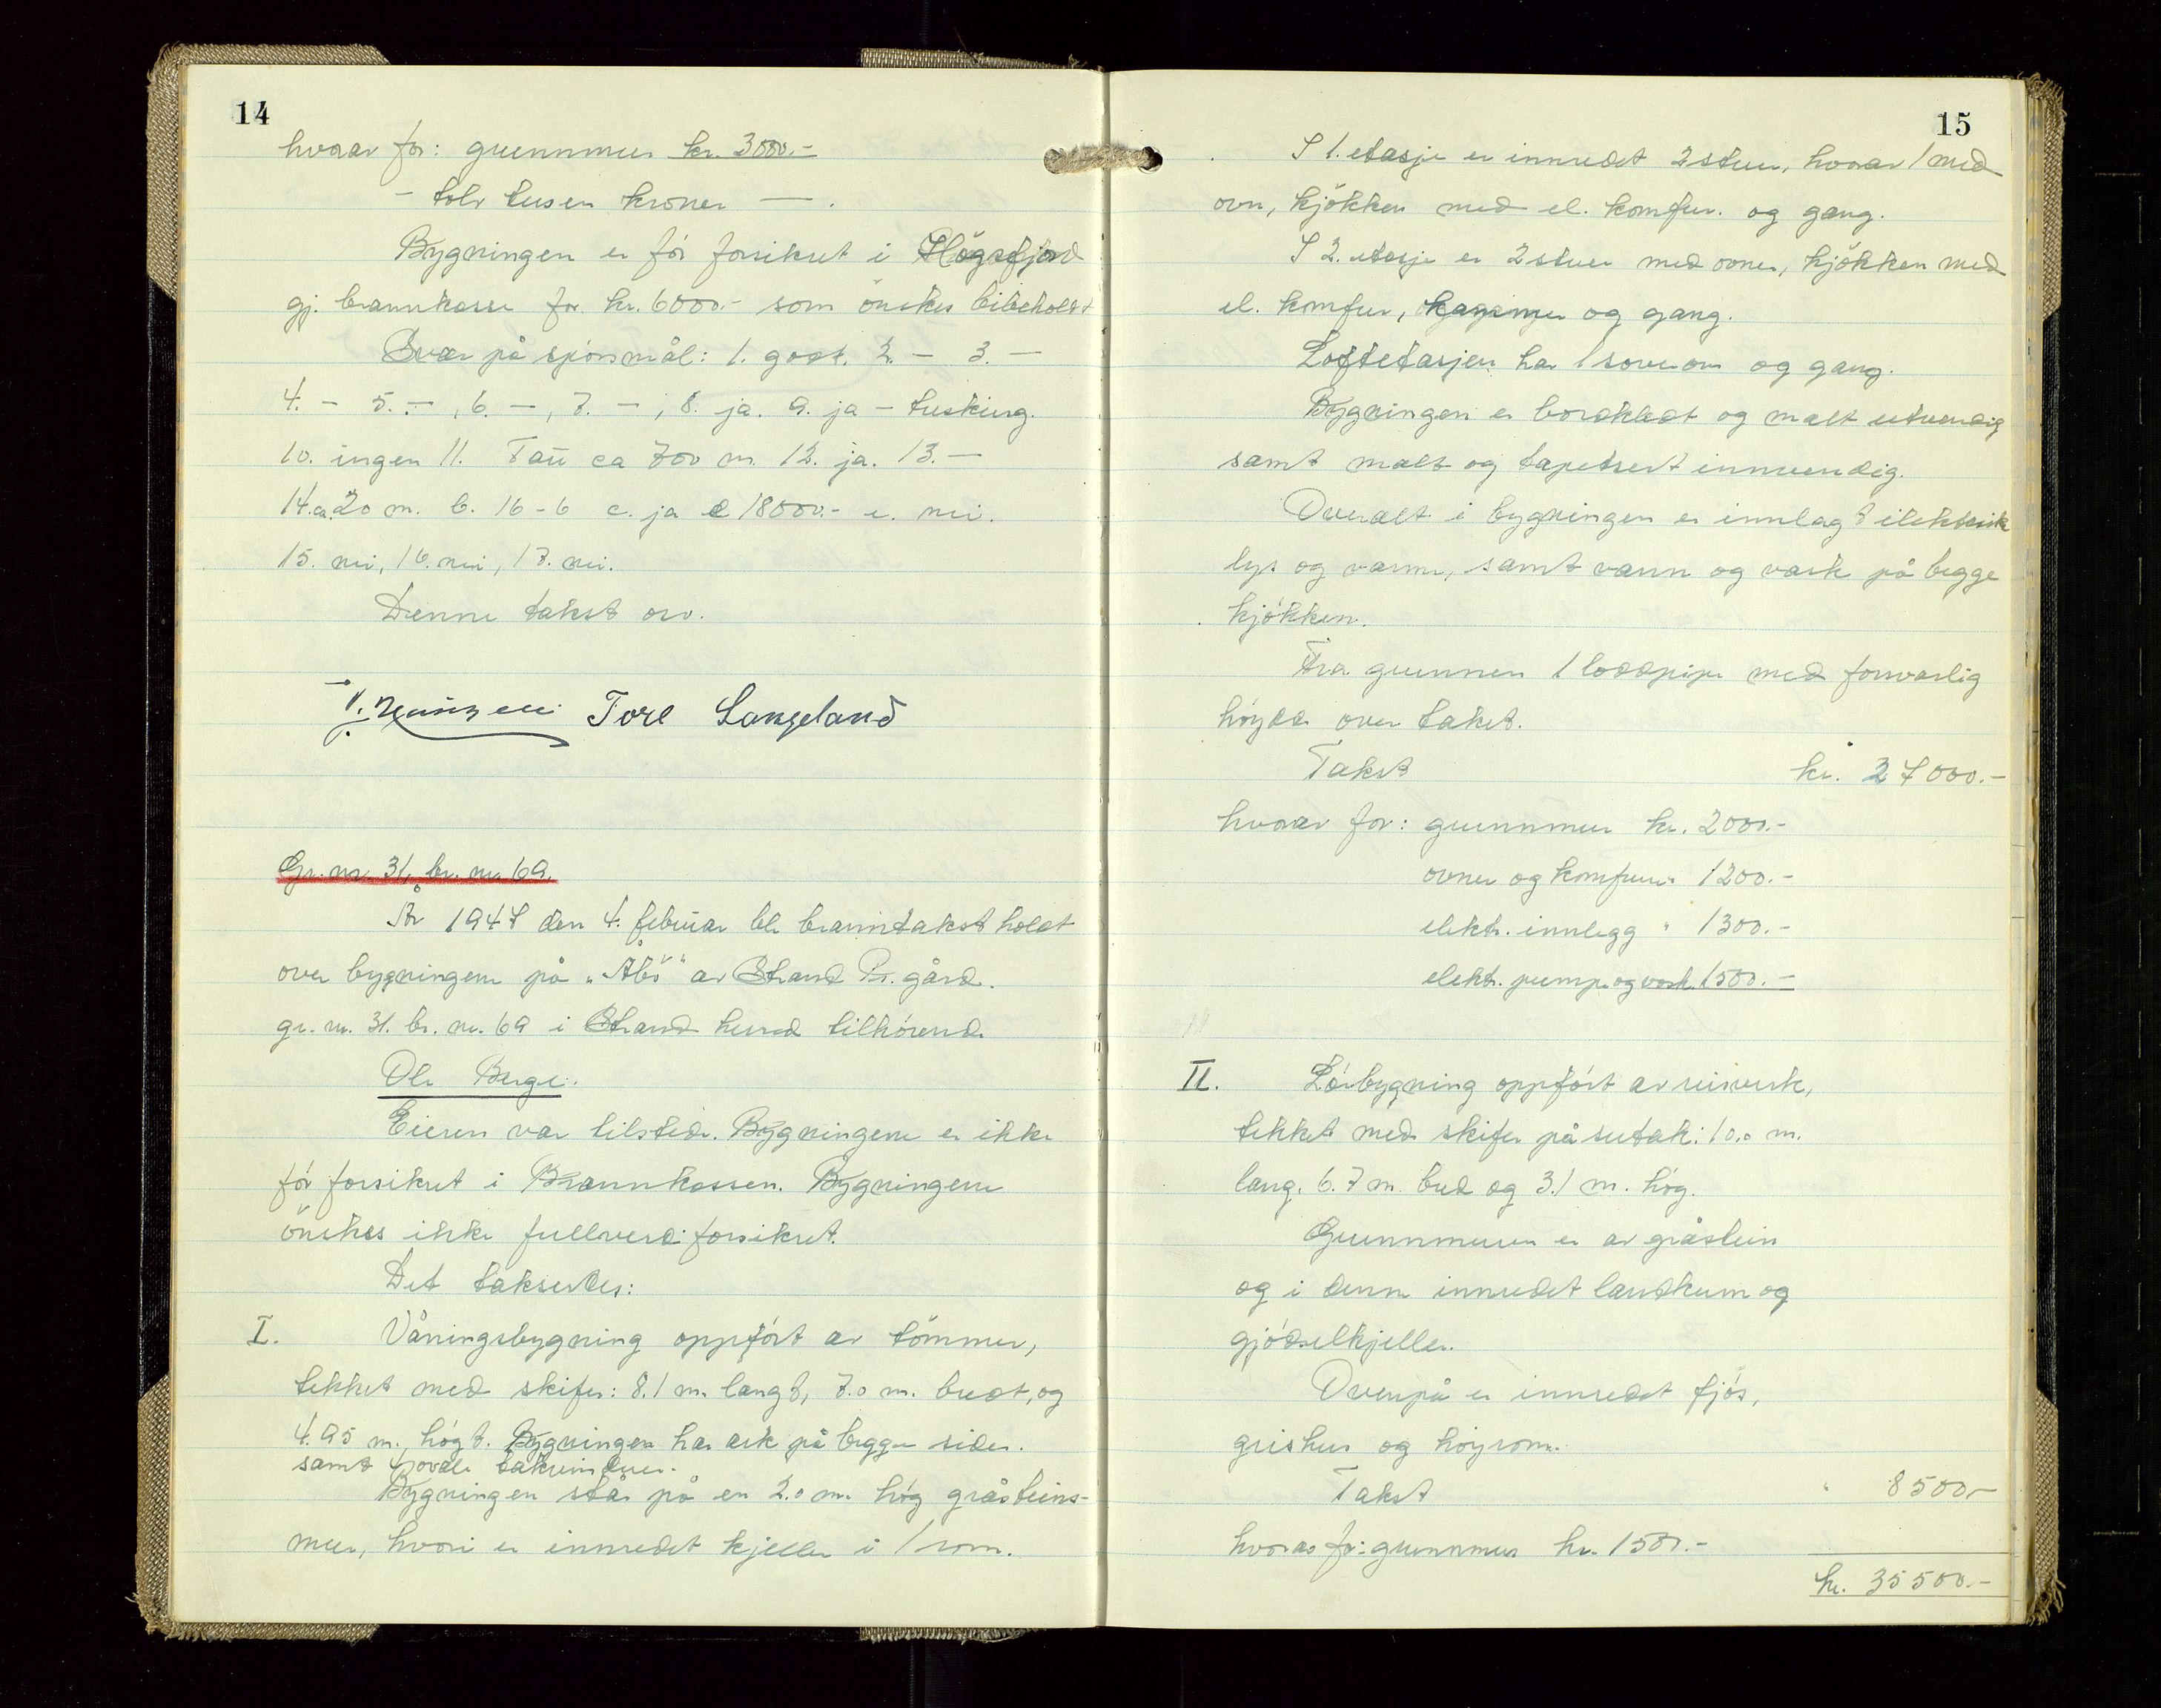 14
hvorav for: grunnmur kr. 3000.-
- tolv tusen kroner — .
Bygningen er før forsikret i Høgsfjord
gj. brannkasse for kr. 6000.- som önskes bibeholdt
Svar på spørsmål: 1. godt. 2. - 3. -
4. - 5. -, 6. -, 7. -, 8. ja. 9. ja - tusking.
10. ingen 11. Tau ca 700 m. 12. ja. 13. -
14.a. 20 m. b. 16-6 c. ja d 18000.- e. nei.
15. nei, 16. nei, 17. nei.
Denne takst osv.
Tore Langeland
Gr. nr. 31, br. nr. 69.
År 1947 den 4. februar ble branntakst holdt
over bygningene på "Åbö" av Strand Pr. gård.
gr. nr. 31. br. nr. 69 i Strand herred tilhørende
Ole Berge.
Eieren var tilstede. Bygningene er ikke
før forsikret i Brannkassen. Bygningene
önskes ikke fullverdiforsikret.
Det takserdes:
I. Våningsbygning oppført av tömmer,
tekket med skifer: 8.1 m. langt, 7.0 m. bredt, og
4.95 m. høgt. Bygningen har ark på begge sider.
samt 4 ovale takvinduer.
Bygningen står på en 2.0 m. høg gråsteins-
mur, hvori er innredet kjeller i 1 rom.
15
I 1. etasje er innredet 2 stuer, hvorav 1 med
ovn, kjökken med el. komfur. og gang.
I 2. etasje er 2 stuer med ovner, kjökken med
el. komfur, kammer og gang.
Loftetasjen har 1 soverom og gang.
Bygningen er bordkledt og malt utvendig
samt malt og tapetsert innvendig.
Overalt i bygningen er innlagt elektrisk
lys og varme, samt vann og vask på begge
kjøkken.
Fra grunnen 1 loddpipe med forsvarlig
høyde over taket.
Takst kr. 27000.-
hvorav for: grunnmur kr. 2000.-
ovner og komfurer " 1200.-
elektr. innlegg " 1300.-
elektr. pumpe og vask. 1500.-
II. Løebygning oppført av reisverk,
tekket med skifer på sutak: 10.0 m.
lang, 6.7 m. bred og 3.1 m. høg.
Grunnmuren er av gråstein
og i denne innredet landkum og
gjødselkjeller.
Ovenpå er innredet fjøs,
grishus og høyrom.
Takst " 8500.-
hvorav for: grunnmur kr. 1500.-
kr. 35500.-